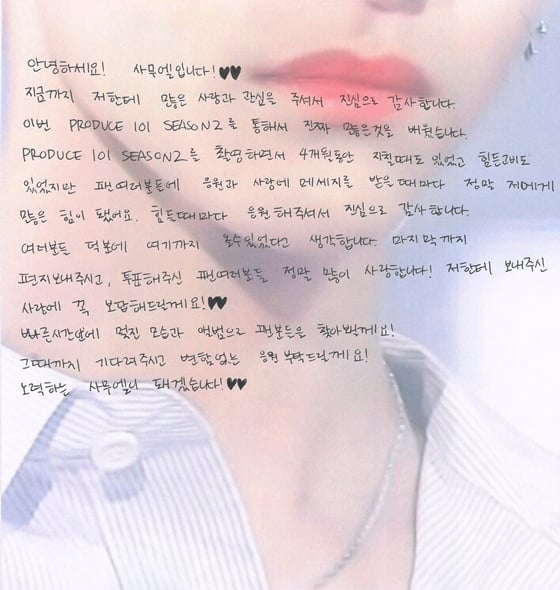 안녕하세요! 사무엘입니다!♥♥
지금까지 저한테 많은 사랑과 관심을 주셔서 진심으로 감사합니다.
이번 PRODUCE 101 SEASON2를 통해서 진짜 많은것을 배웠습니다.
PRODUCE 101 SEASON2를 촬영하면서 4개월동안 지칠때도 있었고 힘든고비도
있었지만 팬여러분들에 응원과 사랑에 메세지를 받은때마다 정말 제에게
많은 힘이 됐어요. 힘들때마다 응원해주셔서 진심으로 감사합니다.
여러분들 덕분에 여기까지 올수있었다고 생각합니다. 마지막까지
편지보내주시고, 투표해주신 팬여러분들 정말 많이 사랑합니다! 저한테 보내주신
사랑에 꼭 보답해드릴께요!♥♥
빠른시간안에 멋진 모습과 앨범으로 팬분들을 찾아뵐께요!
그때까지 기다려주시고 변함없는 응원 부탁드릴께요!
노력하는 사무엘이 돼겠습니다!♥♥